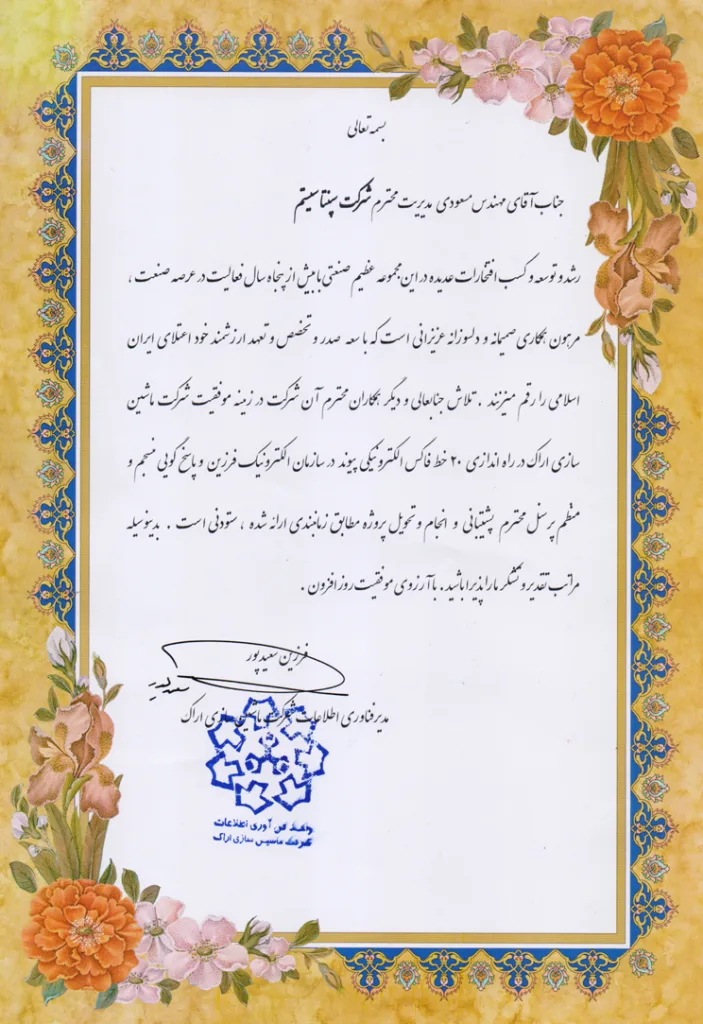 بسمه تعالی
جناب آقای مهندس مسعودی مدیریت محترم شرکت سپنتا سیستم
رشد و توسعه و کسب افتخارات عدیده در این مجموعه عظیم صنعتی با بیش از پنجاه سال فعالیت در عرصه صنعت ،
مرهون همکاری صمیمانه و دلسوزانه عزیزانی است که با سعه صدر و تخصص و تعهد ارزشمند خود اعتلای ایران
اسلامی را رقم میزنند . تلاش جنابعالی و دیگر همکاران محترم آن شرکت در زمینه موفقیت شرکت ماشین
سازی اراک در راه اندازی ۲۰ خط فاکس الکترونیکی پیوند در سازمان الکترونیک فرزین و پاسخ گویی منسجم و
منظم پرسنل محترم پشتیبانی و انجام و تحویل پروژه مطابق زمانبندی ارائه شده ، ستودنی است . بدینوسیله
مراتب تقدیر و تشکر ما را پذیرا باشید . با آرزوی موفقیت روز افزون .
فرزین سعیدپور
مدیر فناوری اطلاعات شرکت ماشین سازی اراک
واحد فن آوری اطلاعات
شرکت ماشین سازی اراک